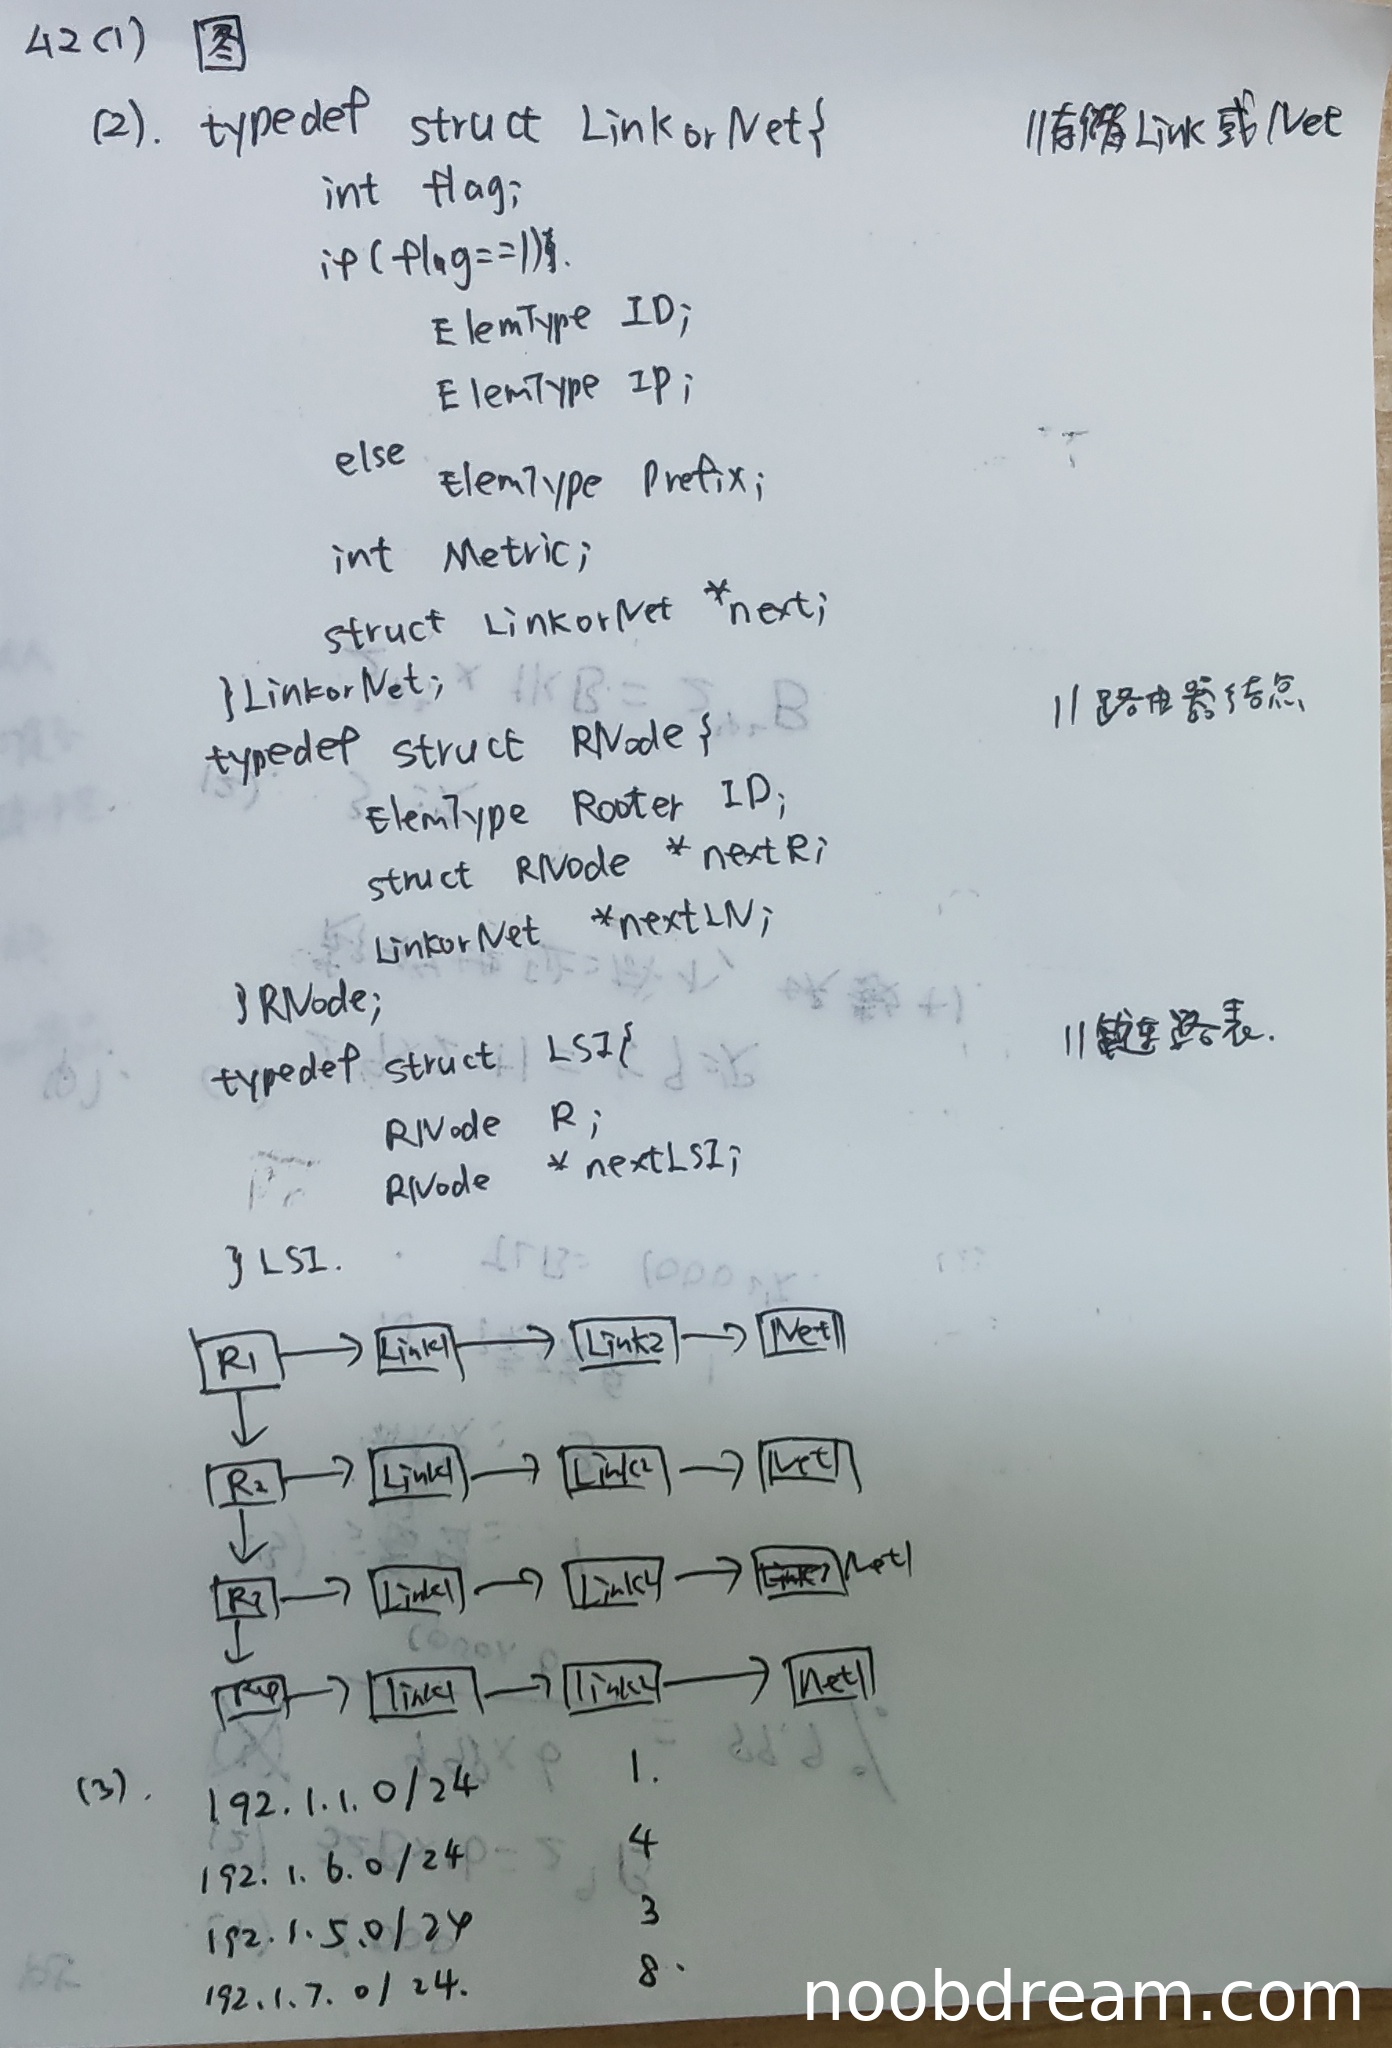 42(1) 图
(2). typedef struct LinkorNet{ //存储Link或Net
int flag;
if(flag==1)
ElemType ID;
ElemType IP;
else
ElemType Prefix;
int Metric;
struct LinkorNet *next;
}LinkorNet;
typedef struct RNode{ //路由器结点
ElemType Rooter ID;
struct RNode *nextR;
LinkorNet *nextLN;
}RNode;
typedef struct LSI{ //链路表.
RNode R;
RNode * nextLSI;
}LSI.
R1 Link1 Link2 Net1
R2 Link1 Link2 Net1
R3 Link1 Link2 Net1
R4 Link1 Link2 Net1
(3). 192.1.1.0/24 1.
192.1.6.0/24 4
192.1.5.0/24 3
192.1.7.0/24. 8.
noobdream.com